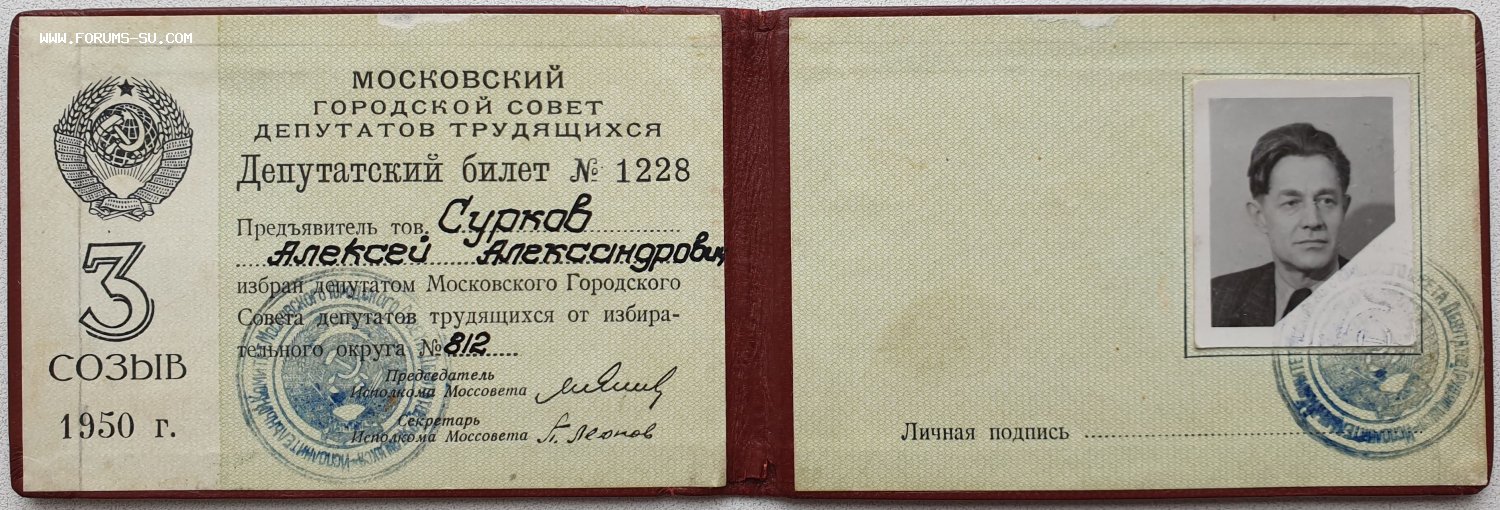 WWW.FORUMS-SU.COM
МОСКОВСКИЙ
ГОРОДСКОЙ СОВЕТ
ДЕПУТАТОВ ТРУДЯЩИХСЯ
Депутатский билет № 1228
Предъявитель тов. Сурков
Алексей Александрович
избран депутатом Московского Городского
Совета депутатов трудящихся от избира-
тельного округа № 812
Председатель
Исполкома Моссовета
Секретарь
Исполкома Моссовета П. Леонов
3
СОЗЫВ
1950 г.
Личная подпись